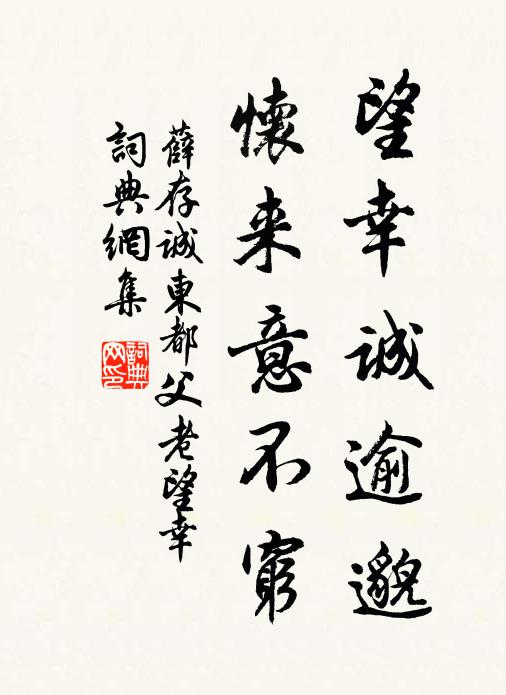 望幸誠逾邈
懷来意不窮
薛存誠東都父老望幸
詞典網集
詞典网印